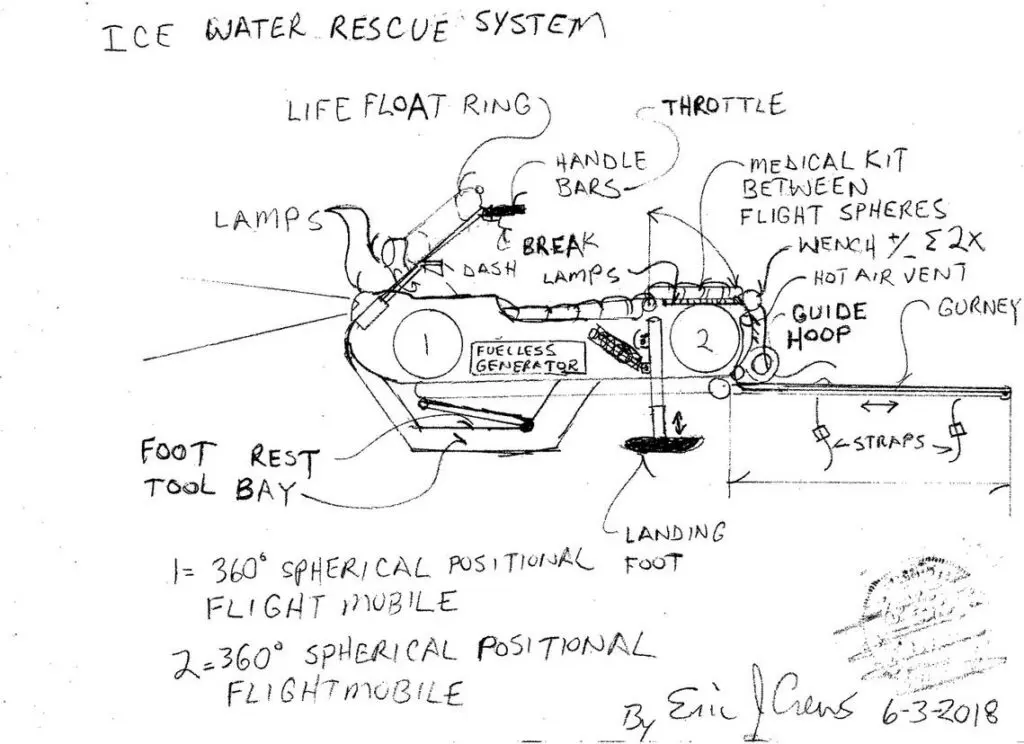 ICE WATER RESCUE SYSTEM
LIFE FLOAT RING
THROTTLE
HANDLE
BARS
MEDICAL KIT
BETWEEN
FLIGHT SPHERES
LAMPS
BREAK
DASH
LAMPS
WENCH +/_ Σ 2X
HOT AIR VENT
GUIDE
HOOP
GURNEY
1
FUELLESS
GENERATOR
2
FOOT REST
TOOL BAY
STRAPS
LANDING
FOOT
1= 360° SPHERICAL POSITIONAL
FLIGHT MOBILE
2=360° SPHERICAL POSITIONAL
FLIGHTMOBILE
By Eric J Crews 6-3-2018